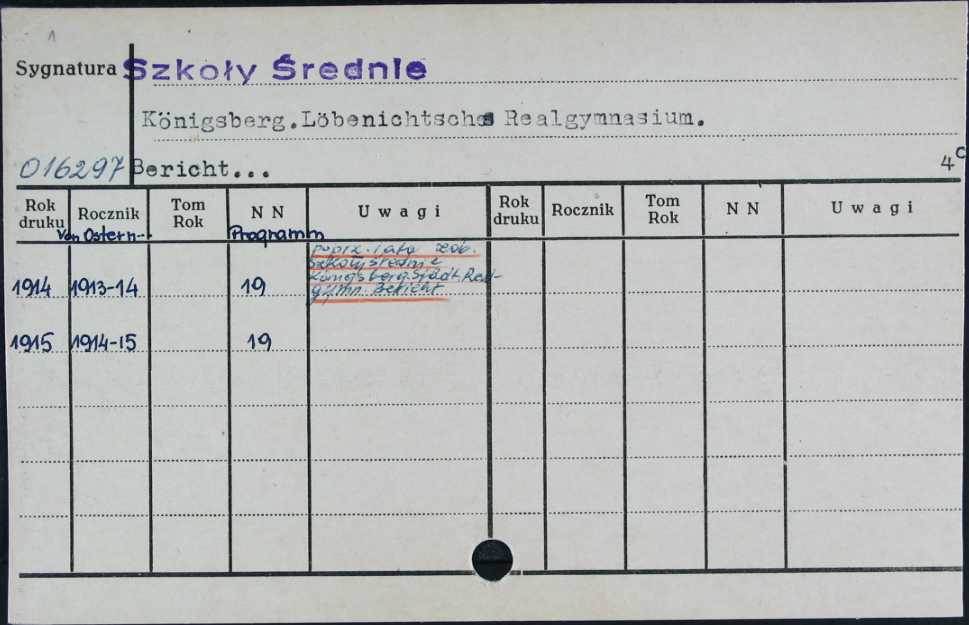 1
Sygnatura Szkoły Średnie
Königsberg. Löbenichtsches Realgymnasium.
016297 Bericht... 4c
Rok druku Rocznik Tom Rok N N Uwagi Rok druku Rocznik Tom Rok N N Uwagi
Von Ostern- Programm
poprz. lata zob.
Szkoły średnie
Königsberg. Städt. Real-
1914 1913-14 19 gymn. Bericht
1915 1914-15 19